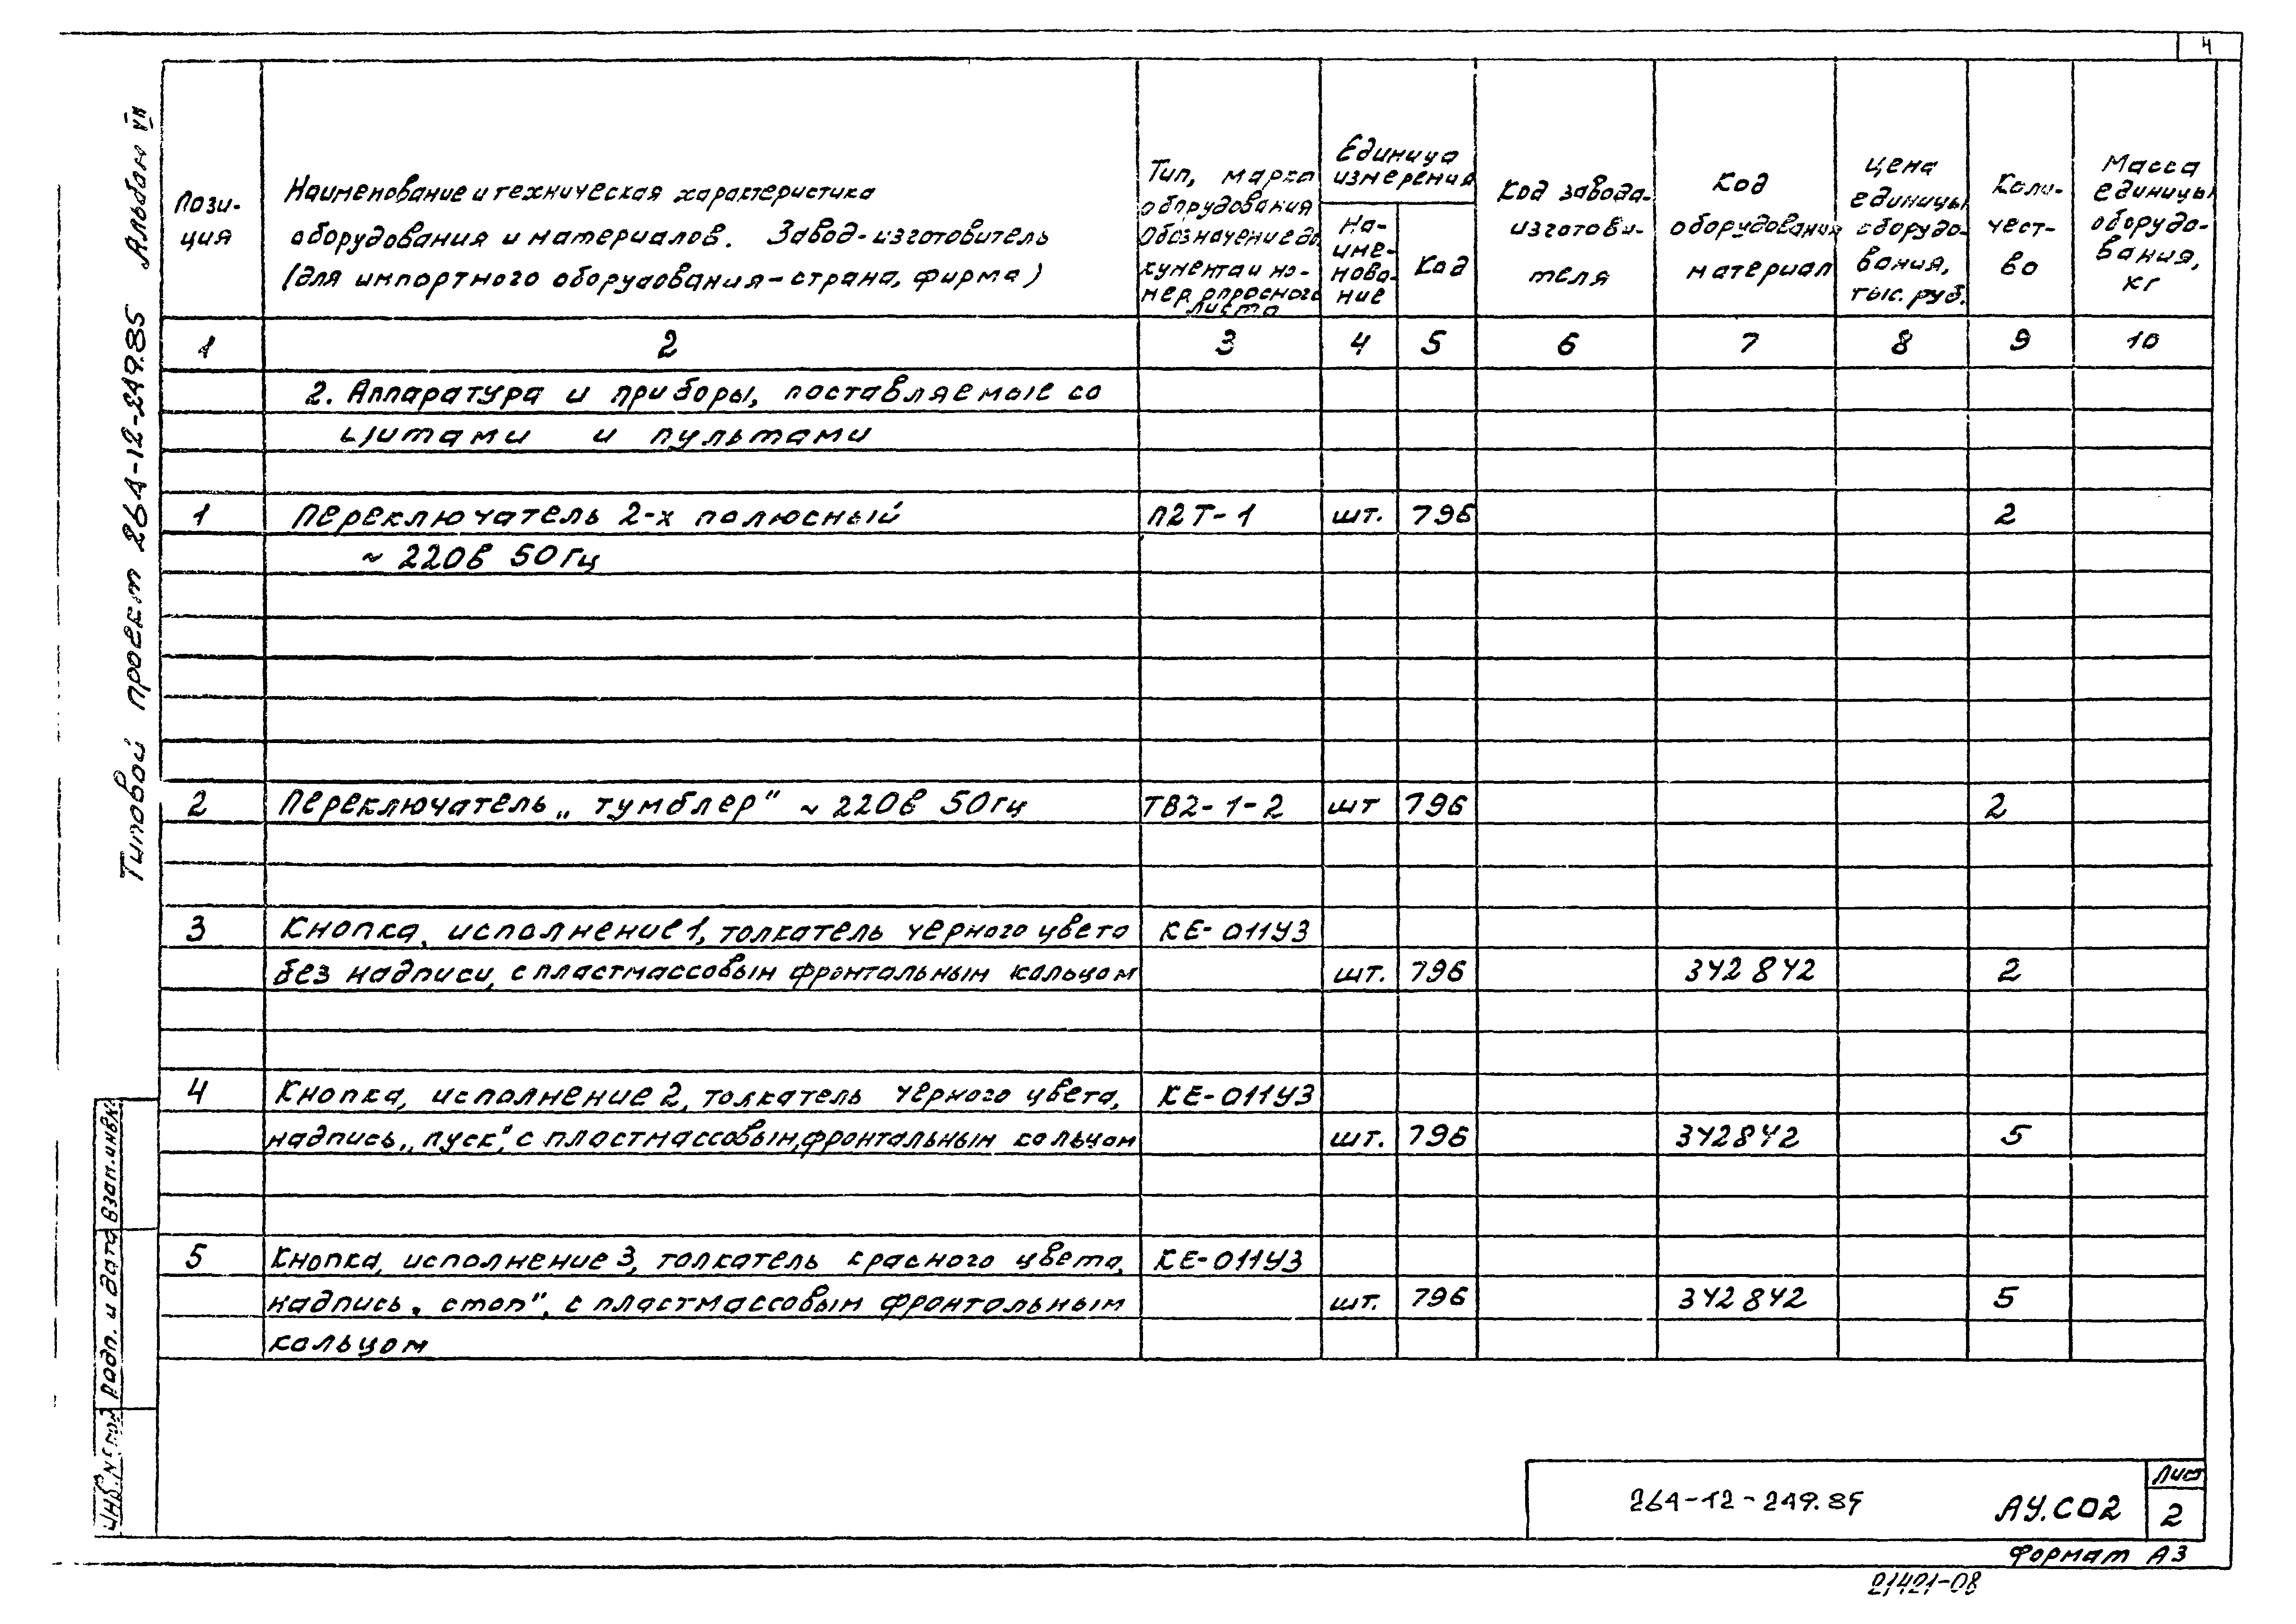 4
Типовой проект 264-12-249.85 Альбом VII
Пози-
ция
Наименование и техническая характеристика
оборудования и материалов. Завод-изготовитель
(для импортного оборудования-страна, фирма)
Тип, марка
оборудования
Обозначение до
кумента и но-
мер опросного
листа
Единица
измерения
На-
име-
нова-
ние
Код
Код завода-
изготови-
теля
Код
оборудования
материал
Цена
единицы
оборудо-
вания,
тыс. руб.
Коли-
чест-
во
Масса
единицы
оборудо-
вания,
кг
1 2 3 4 5 6 7 8 9 10
2. Аппаратура и приборы, поставляемые со
щитами и пультами
1 Переключатель 2-х полюсный П2Т-1 шт. 796 2
~ 220в 50Гц
2 Переключатель „тумблер" ~ 220в 50гц ТВ2-1-2 шт 796 2
3 Кнопка, исполнение 1, толкатель черного цвета КЕ-011У3
без надписи, с пластмассовым фронтальным кольцом шт. 796 342842 2
4 Кнопка, исполнение 2, толкатель черного цвета, КЕ-011У3
надпись „пуск", с пластмассовым, фронтальным кольцом шт. 796 342842 5
5 Кнопка, исполнение 3, толкатель красного цвета, КЕ-011У3
надпись „стоп", с пластмассовым фронтальным шт. 796 342842 5
кольцом
Взам.инв.№
Подп. и дата
Инв.№ подл
264-12-249.85 АУ.СО2
Лист
2
Формат А3
21421-08